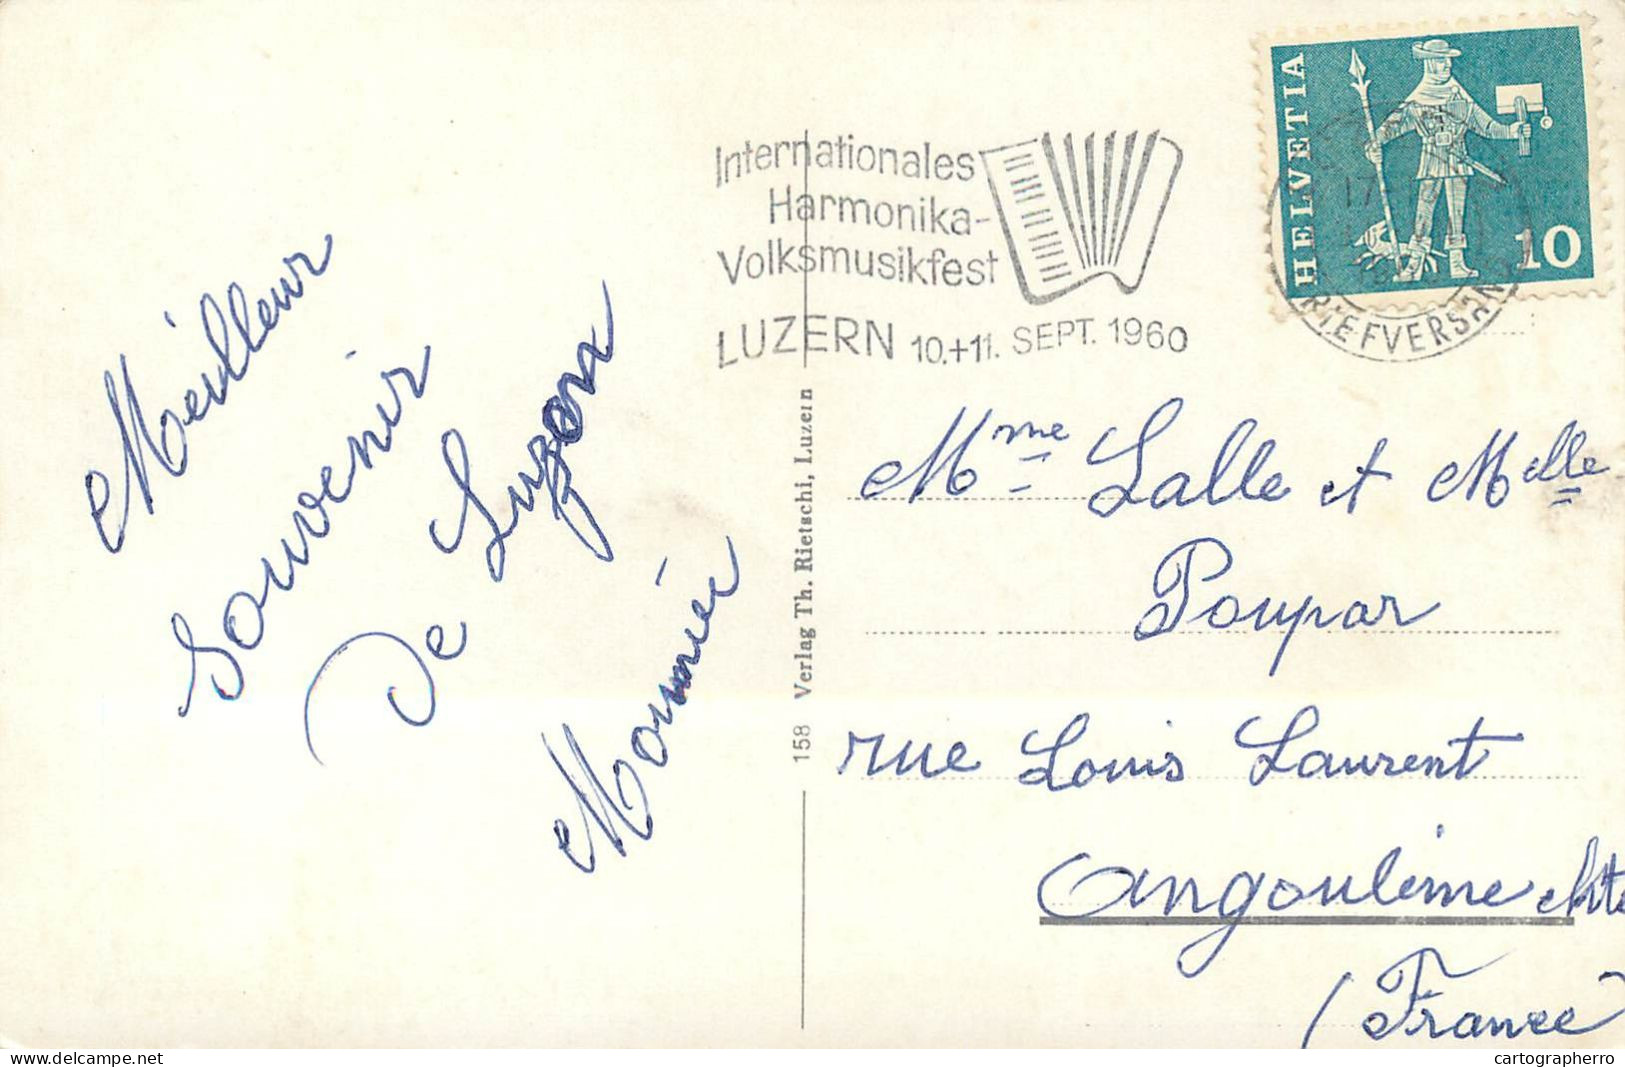 Meilleur
souvenir
de Luzern
Mounier
Internationales
Harmonika-
Volksmusikfest
LUZERN 10.+11. SEPT. 1960
HELVETIA
10
17
BRIEFVERSAND
158 Verlag Th. Rietschi, Luzern
Mme Lalle et Melle
Poupar
rue Louis Laurent
Angoulême chte
(France
cartographerro